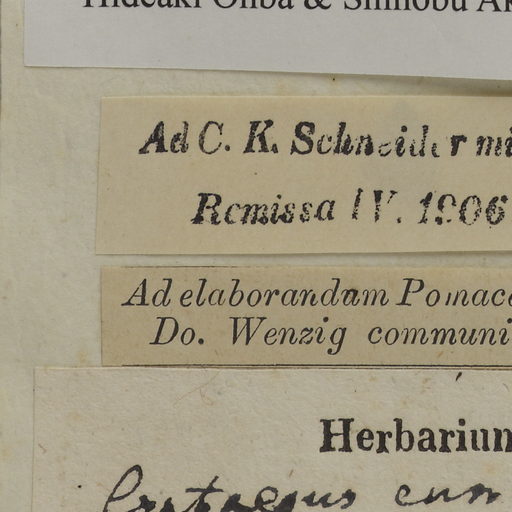 Hideaki Ohba & Shinobu Ak
Ad C. K. Schneider mi
Remissa IV. 1906
Ad elaborandam Pomace
Do. Wenzig communi
Herbarium
Crataegus cun